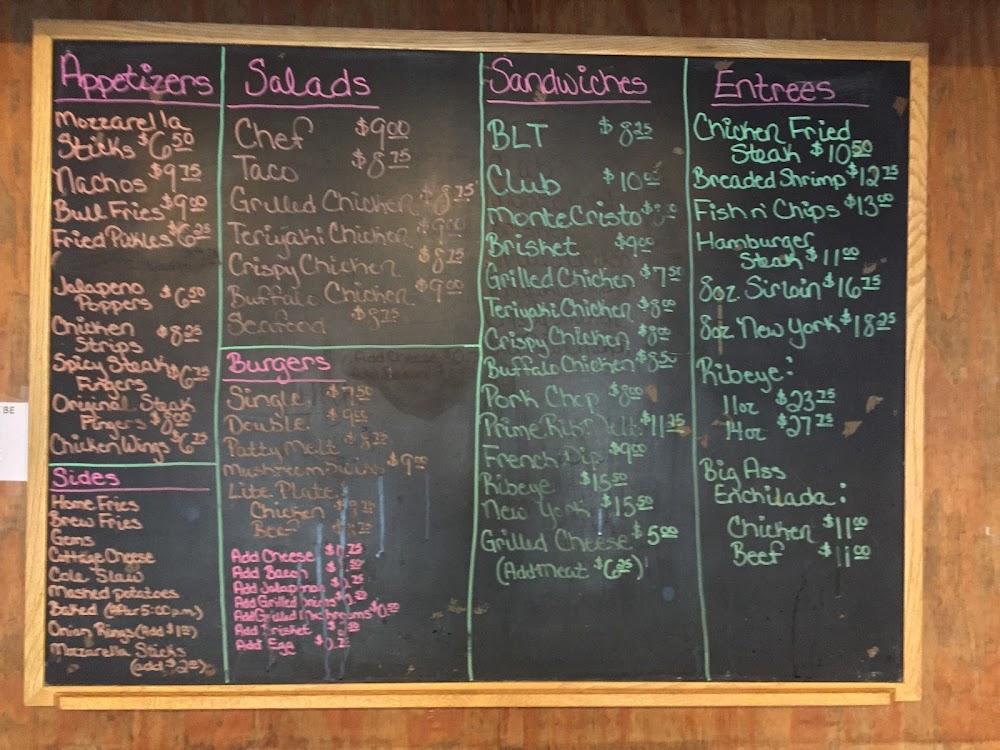 Appetizers
Mozzarella
Sticks $6.50
Nachos $9.75
Bull Fries $9.00
Fried Pickles $6.25
Jalapeno
Poppers $6.50
Chicken
Strips $8.25
Spicy Steak
Fingers $6.75
Original Steak
Fingers $8.00
Chicken Wings $6.75
Sides
Home Fries
Brew Fries
Gems
Cottage Cheese
Cole Slaw
Mashed potatoes
Baked (After 5:00 p.m.)
Onion Rings (Add $1.00)
Mozzarella Sticks
(add $2.00)
Salads
Chef $9.00
Taco $8.75
Grilled Chicken $8.75
Teriyaki Chicken $9.00
Crispy Chicken $8.75
Buffalo Chicken $9.00
Seafood $8.75
Burgers
Single $7.50
Double $9.00
Patty Melt
Mushroom Swiss $9.00
Lite Plate:
Chicken
Beef
Add Cheese
Add Bacon
Add Jalapenos
Add Grilled Onions
Add Grilled Mushrooms $0.50
Add Brisket
Add Egg
Sandwiches
BLT $8.25
Club $10.00
Monte Cristo
Brisket $9.00
Grilled Chicken $7.50
Teriyaki Chicken $8.00
Crispy Chicken $8.00
Buffalo Chicken $8.50
Pork Chop $8.00
Prime Rib Melt $11.25
French Dip $9.00
Ribeye $15.50
New York $15.50
Grilled Cheese $5.00
(Add Meat $6.25)
Entrees
Chicken Fried
Steak $10.50
Breaded Shrimp $12.75
Fish n' Chips $13.00
Hamburger
Steak $11.00
8oz. Sirloin $16.75
8oz New York $18.25
Ribeye:
11oz $23.75
14oz $27.75
Big Ass
Enchilada:
Chicken $11.00
Beef $11.00
BE